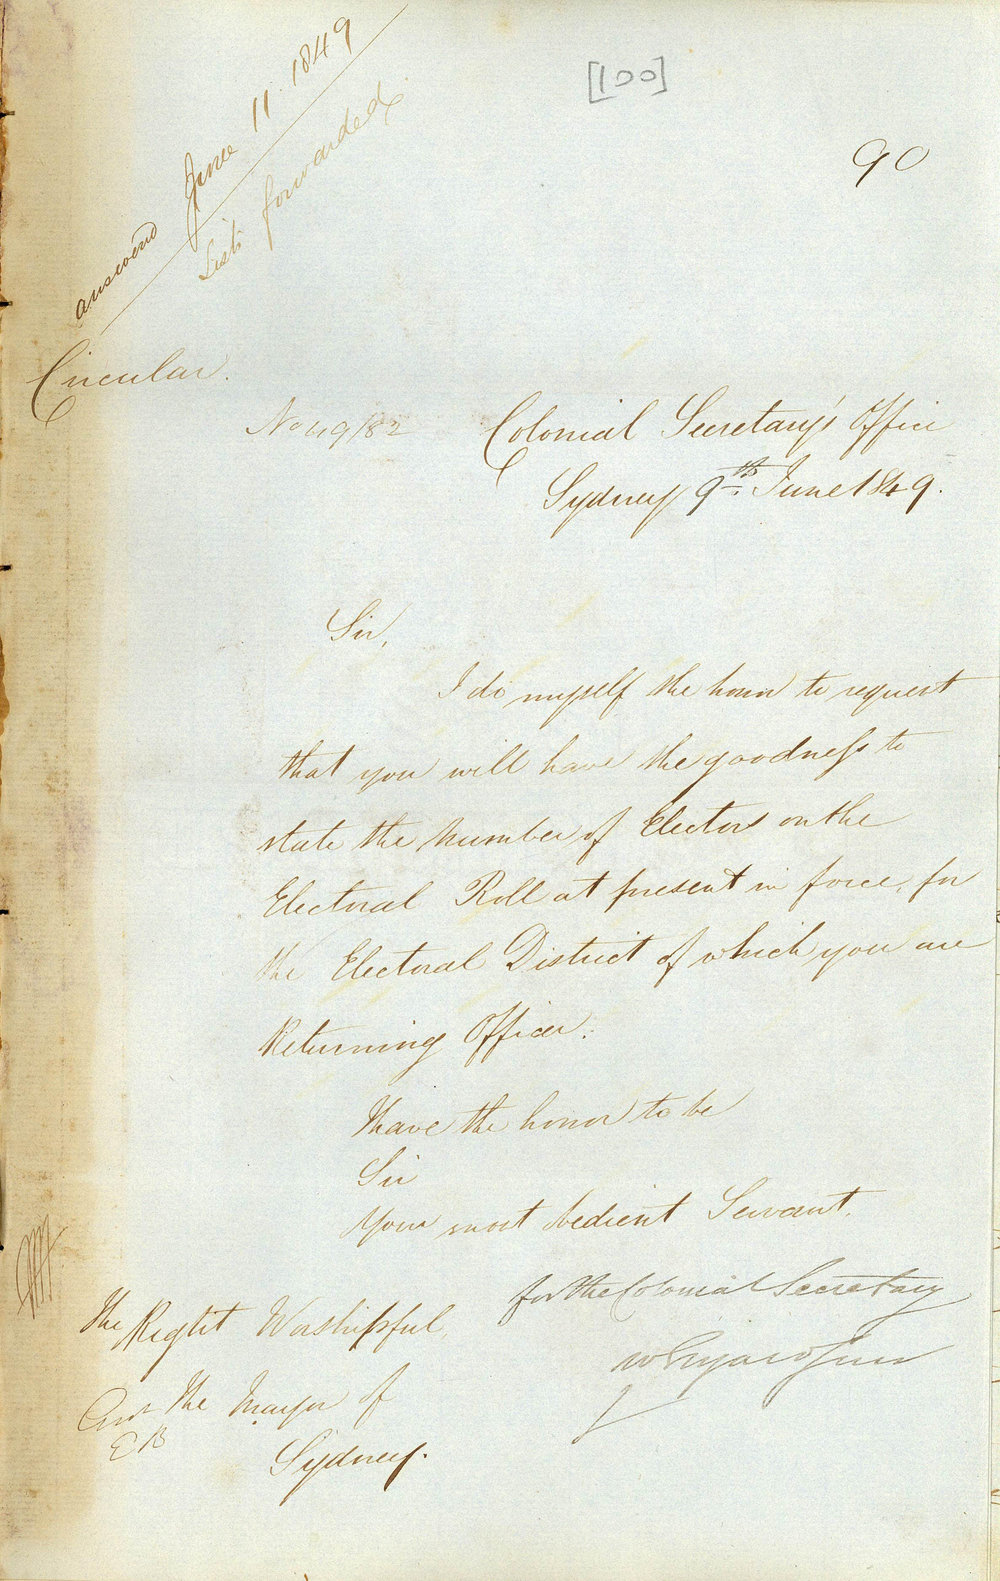 [100]
90
answered June 11 1849
Lists forwarded
Circular.
No 49/82
Colonial Secretary's Office
Sydney 9th June 1849.
Sir,
I do myself the honor to request
that you will have the goodness to
state the number of Electors on the
Electoral Roll at present in force, for
the Electoral District of which you are
Returning Officer.
I have the honor to be
Sir
Your most obedient Servant.
for the Colonial Secretary
The Right Worshipful
the Mayor of
Sydney.